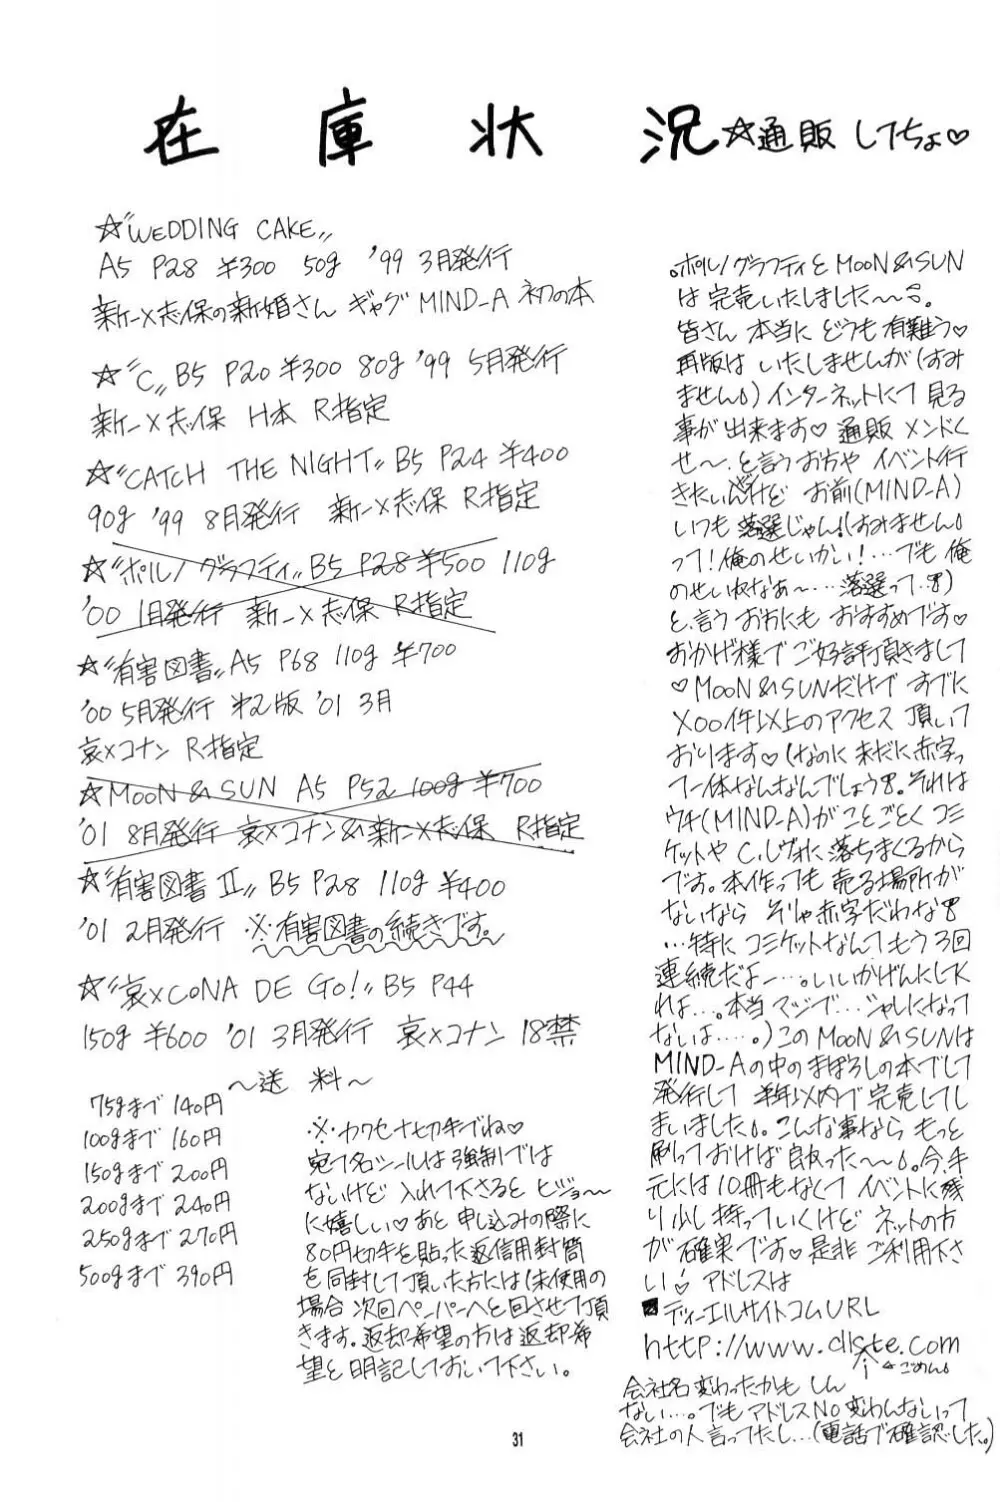 在庫状況 ☆通販してちょ♡
☆〝WEDDING CAKE〟
A5 P28 ¥300 50g '99 3月発行
新一×志保の新婚さん ギャグ MIND-A 初の本
☆〝C〟B5 P20 ¥300 80g '99 5月発行
新一×志保 H本 R指定
☆〝CATCH THE NIGHT〟B5 P24 ¥400
90g '99 8月発行 新一×志保 R指定
☆〝ポルノグラフティ〟B5 P28 ¥500 110g
'00 1月発行 新一×志保 R指定
☆〝有害図書〟A5 P68 110g ¥700
'00 5月発行 第2版 '01 3月
哀×コナン R指定
☆MOON & SUN A5 P52 100g ¥700
'01 8月発行 哀×コナン&新一×志保 R指定
☆〝有害図書Ⅱ〟B5 P28 110g ¥400
'01 2月発行 ※有害図書の続きです。
☆〝哀×CONA DE GO!〟B5 P44
150g ¥600 '01 3月発行 哀×コナン 18禁
〜送料〜
75gまで 140円
100gまで 160円
150gまで 200円
200gまで 240円
250gまで 270円
500gまで 390円
※カワセナ切手でね♡
宛て名シールは強制では
ないけど 入れて下さると ヒジョ〜
に嬉しい♡あと 申し込みの際に
80円切手を貼った返信用封筒
を同封して頂いた方には(未使用の
場合 次回ペーパーへと回させて頂
きます。返却希望の方は返却希
望と明記しておいて下さい。
。ポルノグラフティとMOON&SUN
は完売いたしました〜。
皆さん 本当に どうも 有難う♡
再版は いたしませんが(すみ
ません)インターネットにて 見る
事が 出来ます♡ 通販 メンドく
せ〜。と言うお方や イベント行
きたいんだけど お前(MIND-A)
いつも 落選じゃん!(すみません
って!俺のせいかい!…でも 俺
のせいねなぁ〜…落選って)
と、言う お方にも おすすめです♡
おかげ様で ご好評頂きまして
♡MOON&SUNだけで すでに
×00件以上のアクセス 頂いて
おります♡(なのに 未だに赤字っ
て一体なんなんでしょう。それは
ウチ(MIND-A)が ことごとく コミ
ケットや C.レヴォに 落ちまくるから
です。本作っても 売る場所が
ないなら そりゃ赤字だわな
…特に コミケットなんて もう 3回
連続だよー…。いいかげんにしてく
れよ…。本当 マジで…シャレになって
ないよ……。)この MOON&SUNは
MIND-Aの中の まぼろしの本でして
発行して 半年以内で 完売してし
まいました。こんな事なら もっと
刷っておけば 良かった〜。今、手
元には 10冊もなくて イベントに残
り少し 持っていくけど ネットの方
が 確実です♡ 是非 ご利用下さ
い♡ アドレスは
■ディーエルサイトコムURL
http://www.dlsite.com
←ごめん
会社名変わったかも しん
ない…。でも アドレスNO変わんないって
会社の人 言ってたし…(電話で確認した。)
31